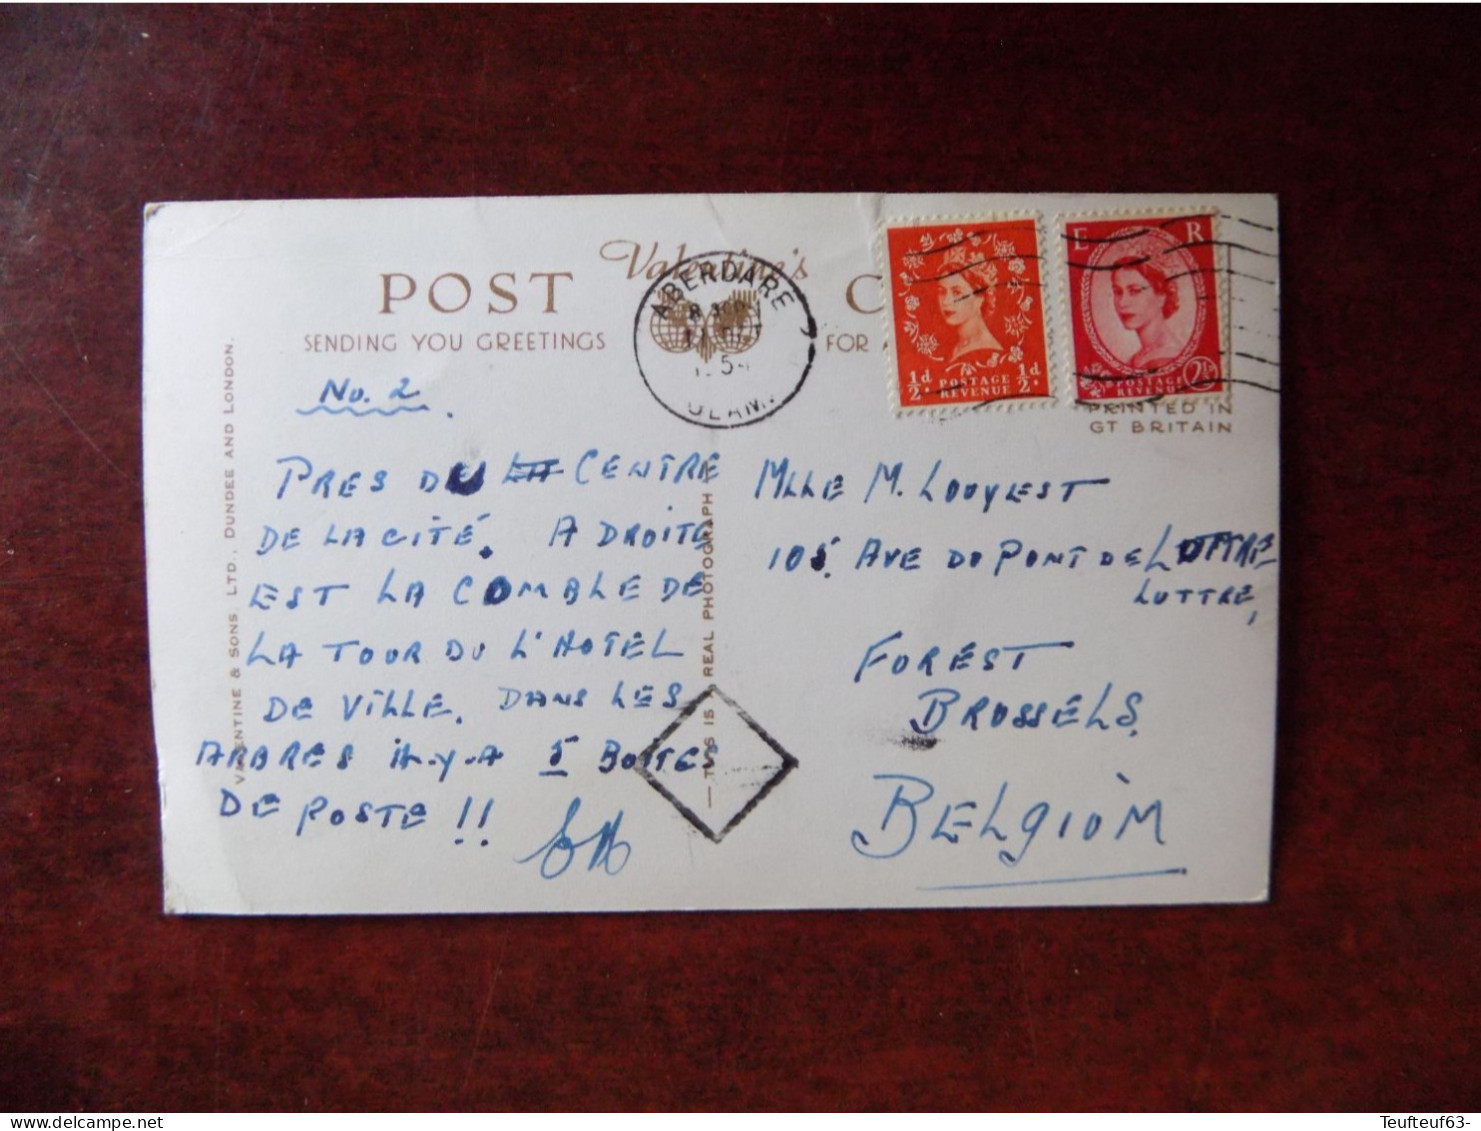 Valentine's
POST
SENDING YOU GREETINGS
FOR
ABERDARE
GLAM.
½d. POSTAGE REVENUE ½d.
E R
POSTAGE REVENUE 2½d
PRINTED IN
GT BRITAIN
VALENTINE & SONS, LTD., DUNDEE AND LONDON.
THIS IS A REAL PHOTOGRAPH
No. 2.
PRES DU LA CENTRE
DE LA CITÉ. A DROITE
EST LA COMBLE DE
LA TOUR DU L'HOTEL
DE VILLE. DANS LES
ARBRES il-y-A 5 BOITES
DE POSTE !!
MLLE M. LOUYEST
105. AVE DU PONT DE LUTTRE
LUTTRE,
FOREST
BRUSSELS.
BELGIUM
Teufteuf63-delcampe.net